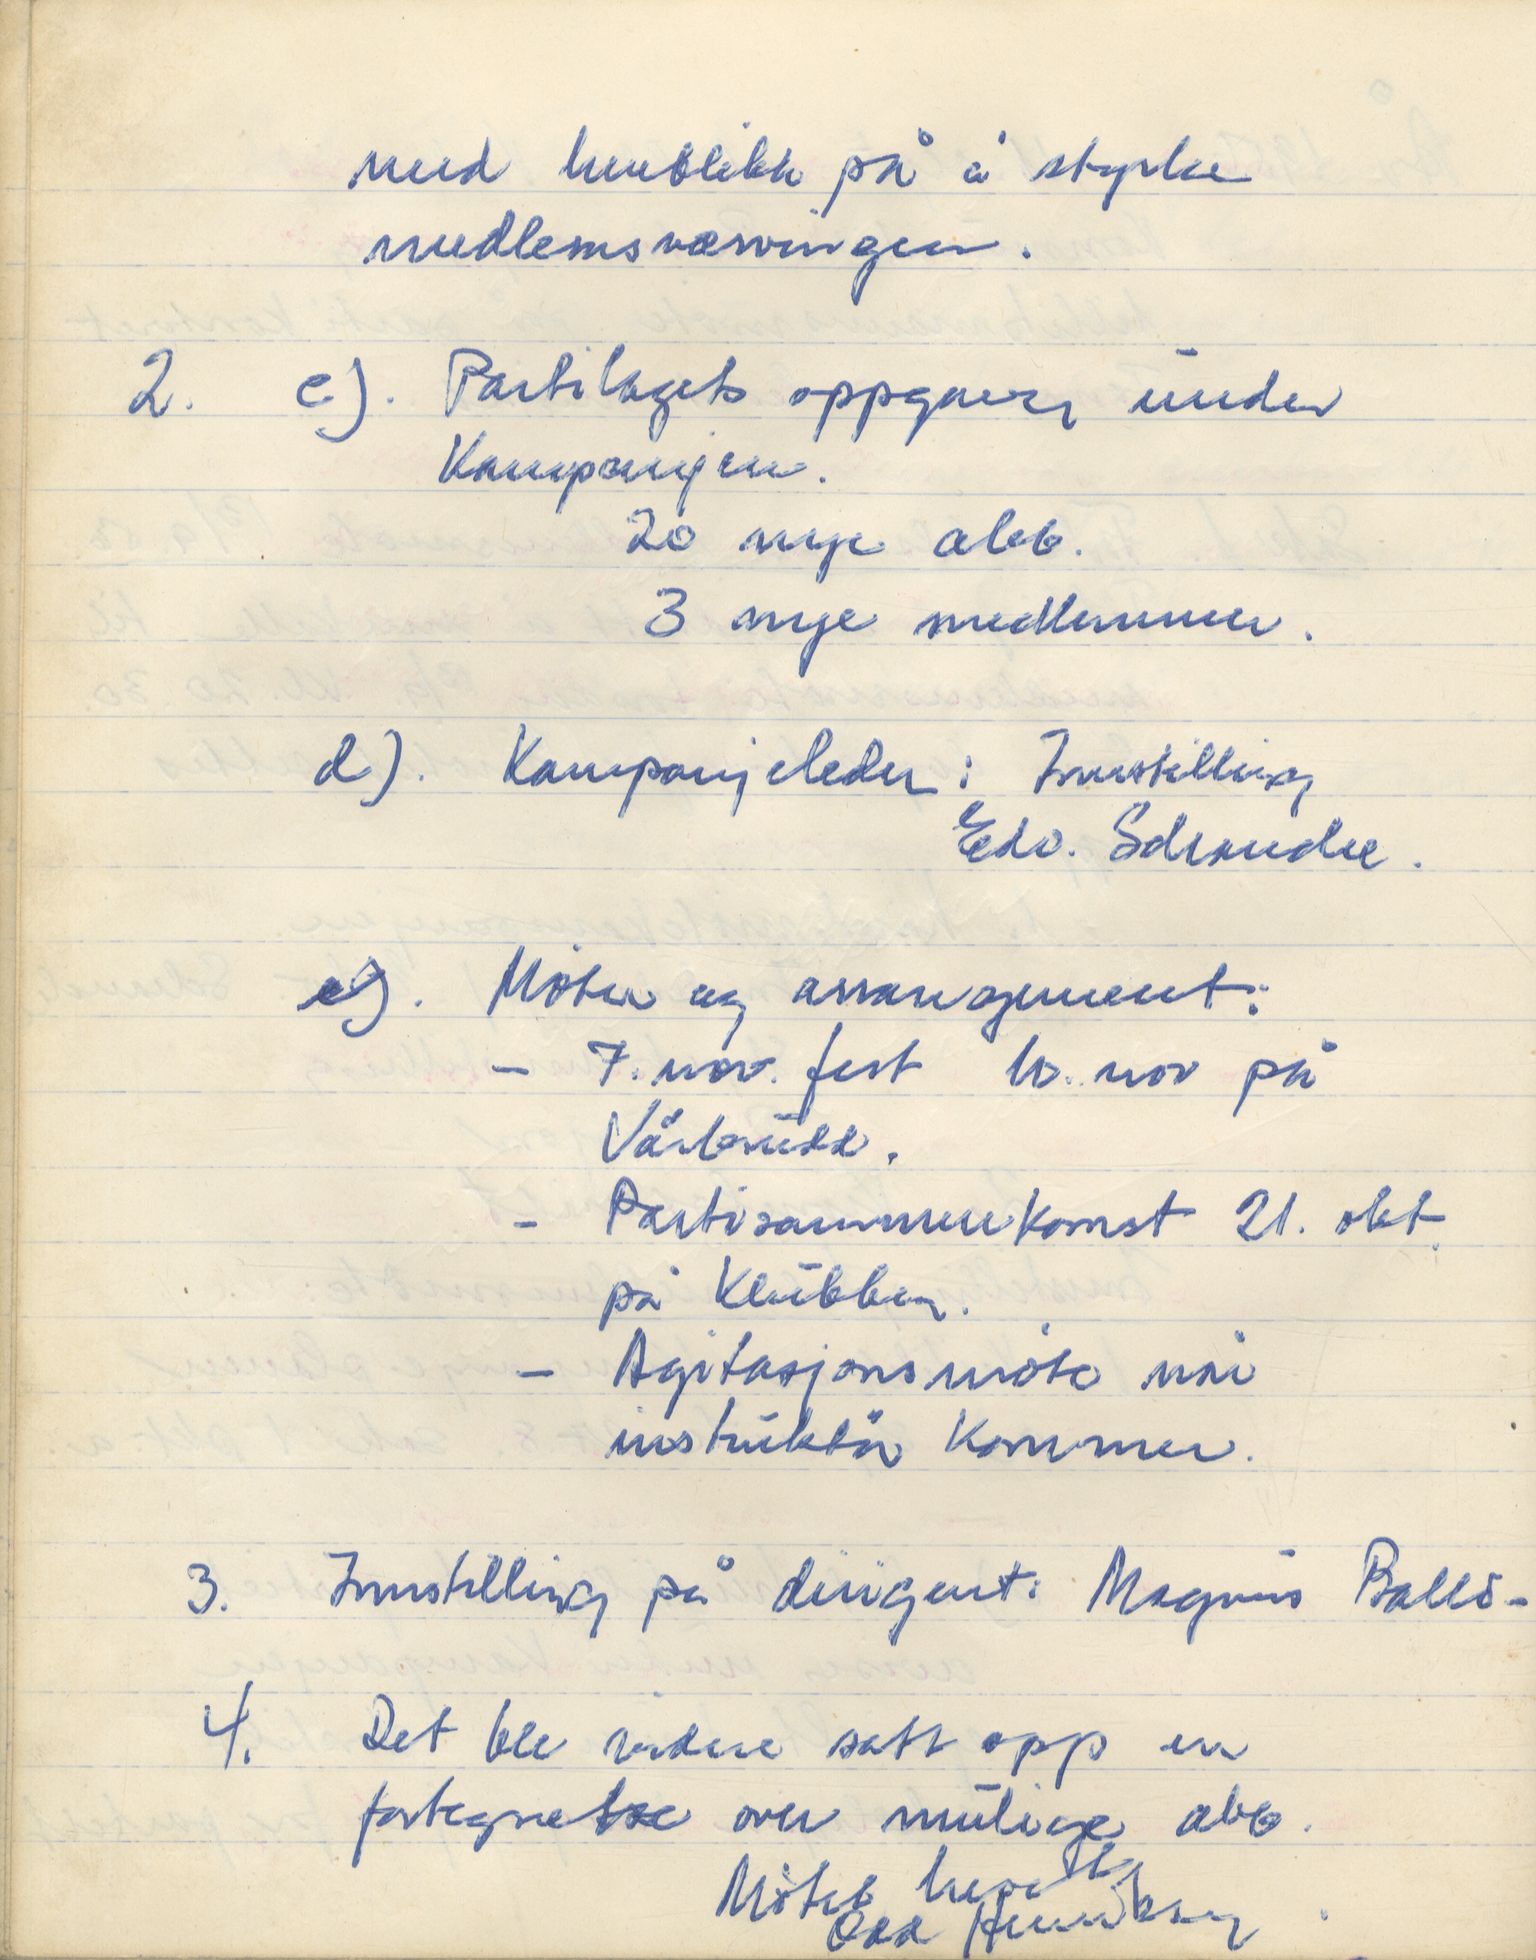 med henblikk på å styrke
medlemsvervingen.
2. c). Partilagets oppgaver under
Kampanjen.
20 nye abb.
3 nye medlemmer.
d). Kampanjeleder: Innstilling
Edv. Schrandee.
e). Møter og arrangement:
- 7. nov. fest 10. nov på
Vårbrudd.
- Partisammenkomst 21. okt.
på Klubben.
- Agitasjonsmøte når
instruktør kommer.
3. Innstilling på dirigent: Magnus Ballo-
4. Det ble videre satt opp en
fortegnelse over mulige abb.
Møtet hevet
Odd Henriksen